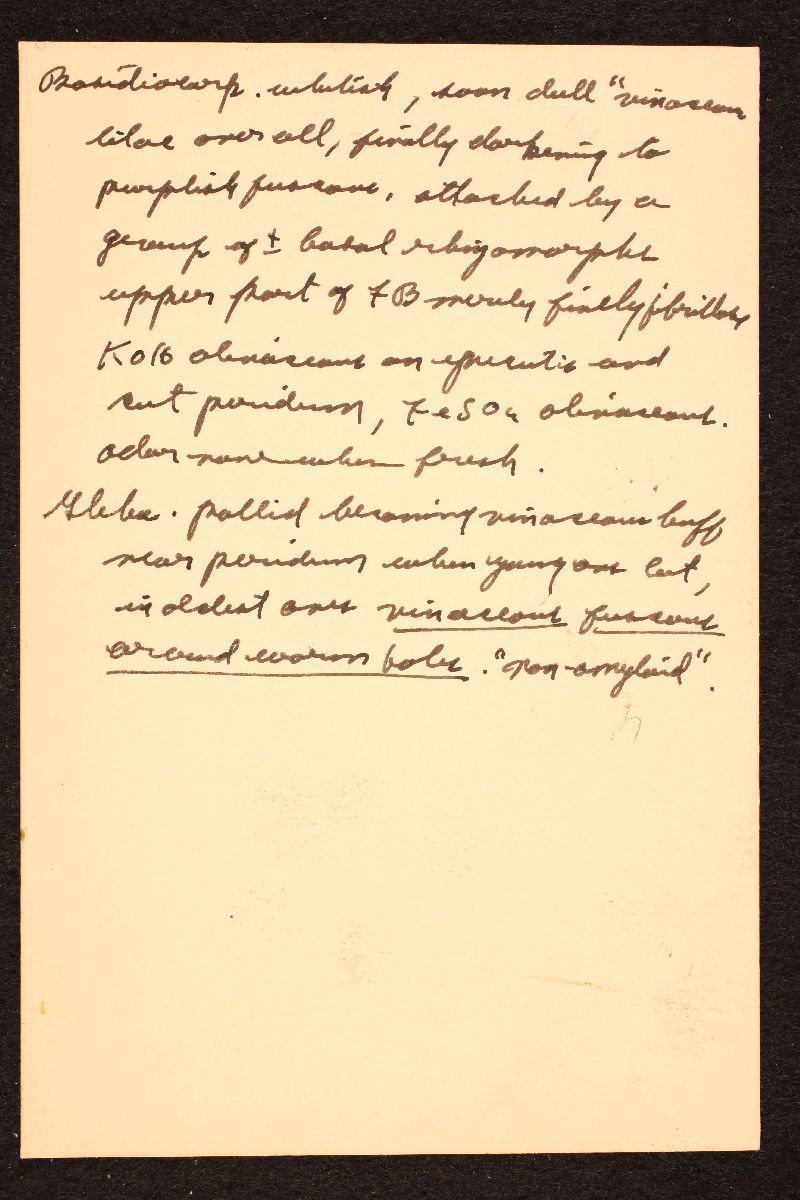 Basidiocarp. whitish, soon dull "vinaceous
lilac over all, finally darkening to
purplish fuscous, attached by a
group of ± basal rhizomorphs
upper part of FB merely finely fibrillose
KOH olivaceous on epicutis and
cut peridium, FeSO4 olivaceous.
odor none when fresh.
Gleba. pallid becoming vinaceous buff
near peridium when young or cut,
in oldest ones vinaceous fuscous
around worm holes. "non-amyloid".